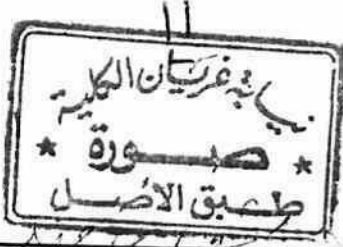 نيابة غريان الكلية
صورة
طبق الاصل